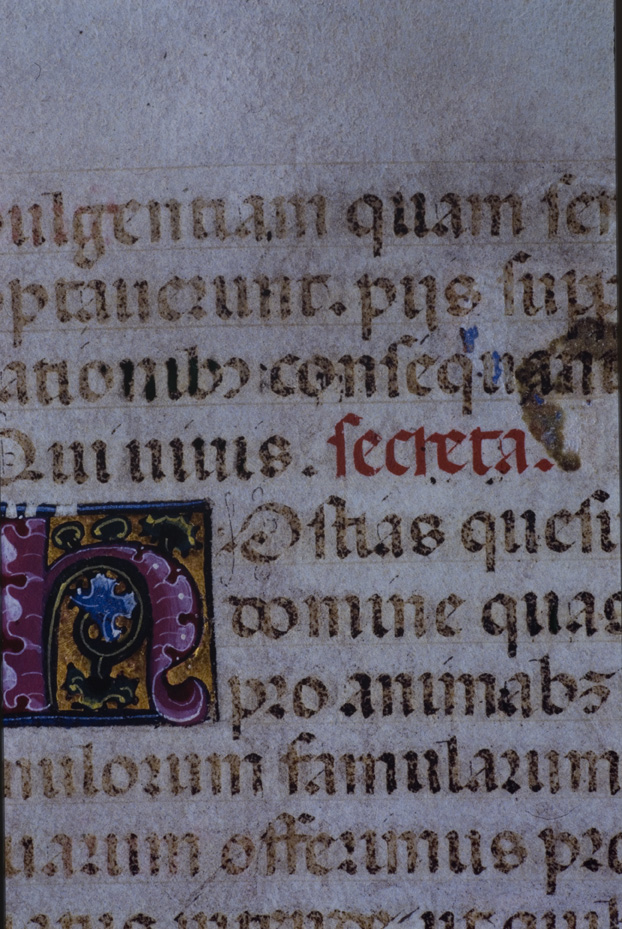 ulgentiam quam sem
ptauerunt. pijs supp
ationibꝫ: consequant
Qui uiuis. secreta.
HOstias quesu
domine quas
pro animabꝫ
mulorum famularum
uarum offerimus pro